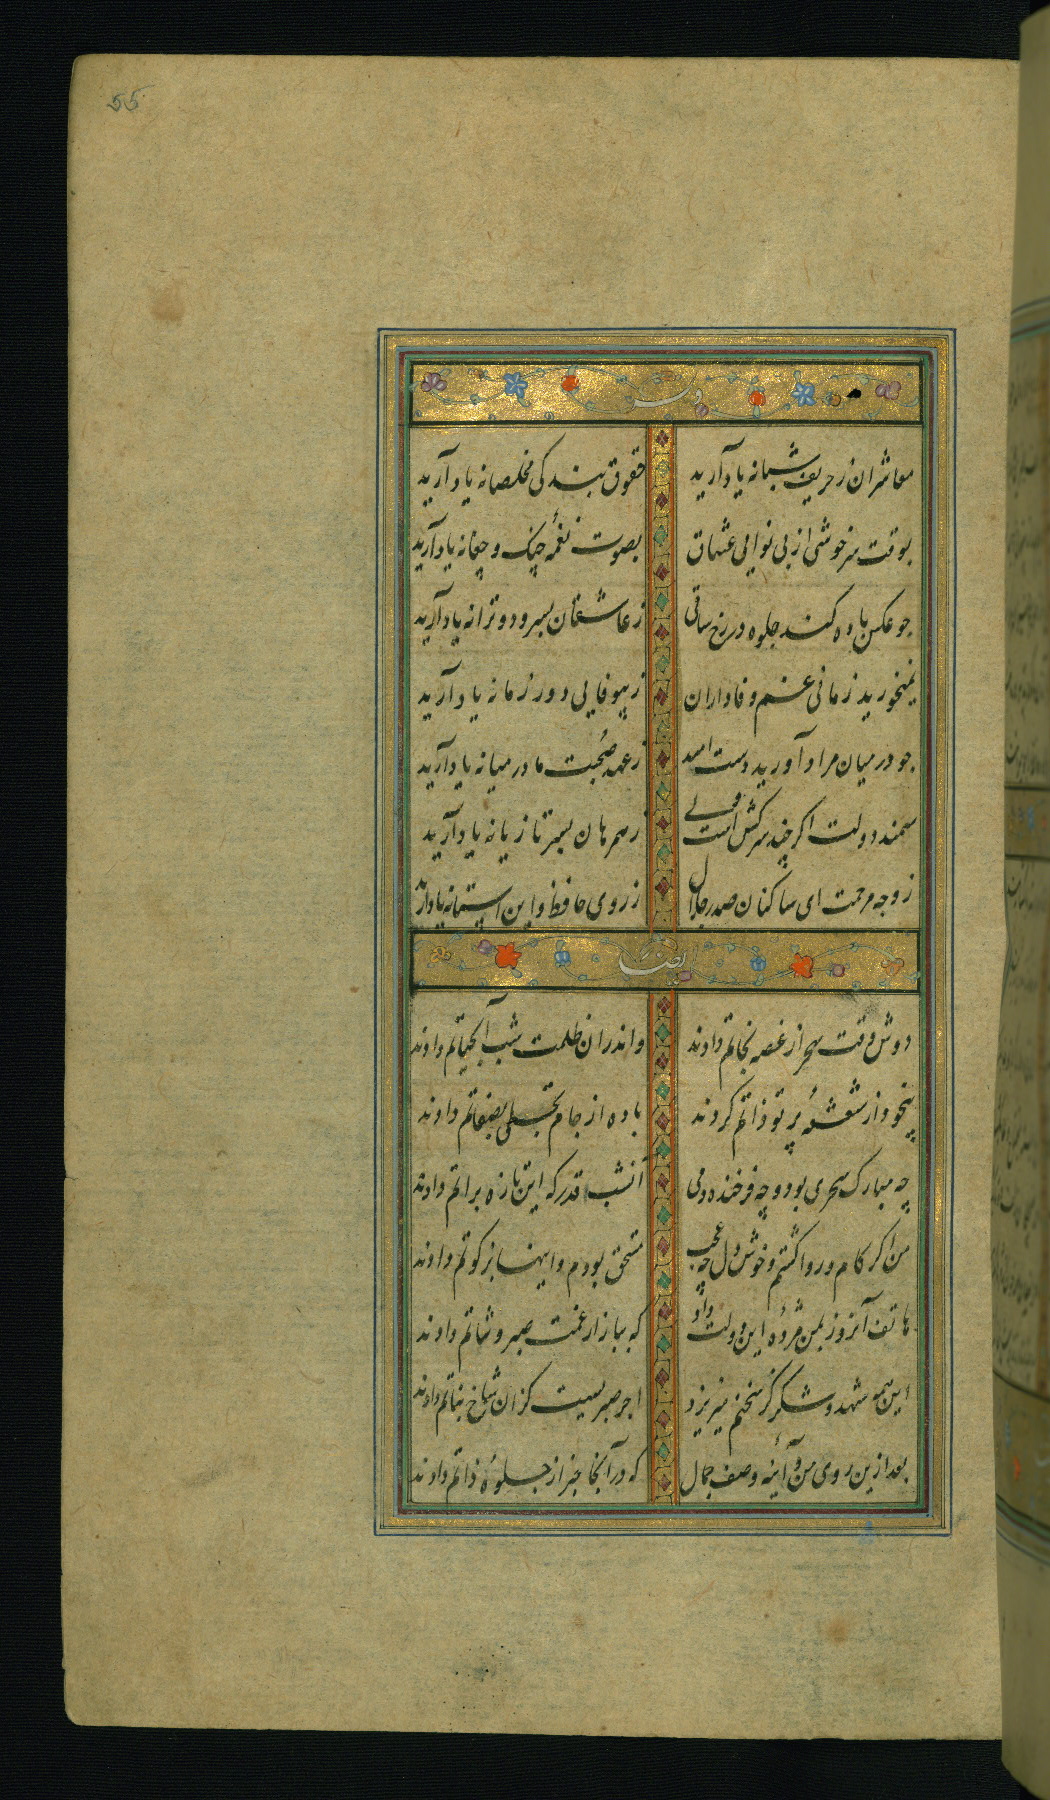 55
وله
معاشران ز حریف شبانه یاد آرید
حقوق بندگی مخلصانه یاد آرید
بوقت سرخوشی از بی نوایی عشاق
بصوت نغمهٔ چنگ و چغانه یاد آرید
جو عکس باده کند جلوه در رخ ساقی
ز عاشقان بسرود و ترانه یاد آرید
نمیخورید زمانی غم وفاداران
ز بیوفایی دور زمانه یاد آرید
جو در میان مراد آورید دست امید
ز عهد صحبت ما در میانه یاد آرید
سمند دولت اکر چند سرکش است ولی
ز همرهان بسر تازیانه یاد آرید
ز وجه مرحمت ای ساکنان صدر جلال
ز روی حافظ و این آستانه یاد آرید
ایضا
دوش وقت سحر از غصه نجاتم دادند
واندران ظلمت شب آبحیاتم دادند
بیخود از شعشعهٔ پرتو ذاتم کردند
باده از جام تجلی بصفاتم دادند
چه مبارک سحری بود و چه فرخنده دمی
آنشب قدر که این تازه براتم دادند
من اکر کام روا کشتم و خوش دل چه عجب
مستحق بودم و اینها بزکوتم دادند
هاتف آنروز بمن مژدهٔ این دولت داد
که ببازار غمت صبر و ثباتم دادند
این همه شهد و شکر کز سخنم میریزد
اجر صبریست کزان شاخ نباتم دادند
بعد ازین روی من و آینه وصف جمال
که در آنجا خبر از جلوهٔ ذاتم دادند